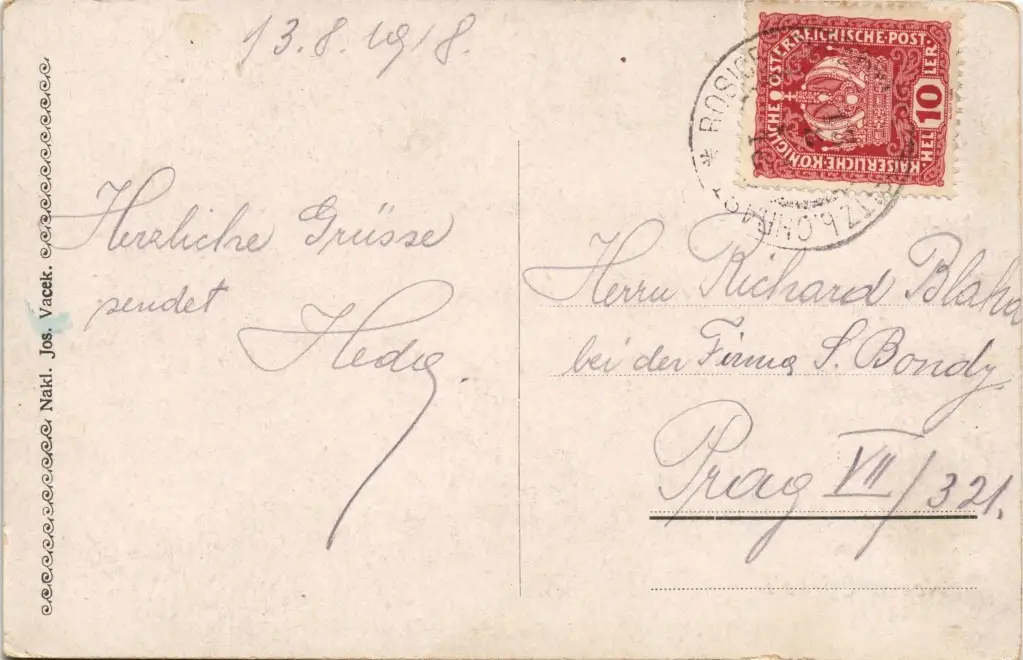 13.8.1918.
Herzliche Grüsse
sendet
Heda.
Nakl. Jos. Vacek.
KAISERLICHE KÖNIGLICHE ÖSTERREICHISCHE POST
10 HELLER
* ROSIC
Herrn Richard Blaha
bei der Firma S. Bondy
Prag VII/321.